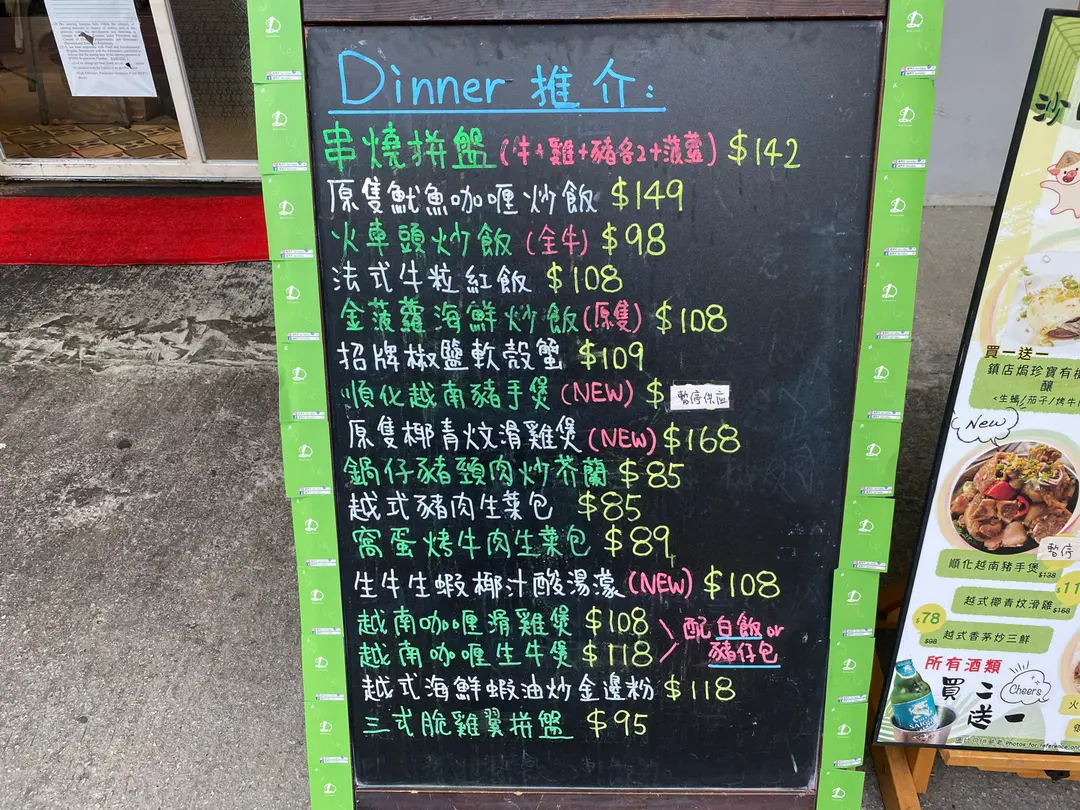 Dinner 推介:
串燒拼盤(牛+雞+豬各2+菠蘿) $142
原隻魷魚咖喱炒飯 $149
火車頭炒飯(全牛) $98
法式牛粒紅飯 $108
金菠蘿海鮮炒飯(原隻) $108
招牌椒鹽軟殼蟹 $109
順化越南豬手煲(NEW) $ 暫停供应
原隻椰青炆滑雞煲(NEW) $168
鍋仔豬頸肉炒芥蘭 $85
越式豬肉生菜包 $85
窩蛋烤牛肉生菜包 $89
生牛生蝦椰汁酸湯濛(NEW) $108
越南咖喱滑雞煲 $108
越南咖喱生牛煲 $118
配白飯or
豬仔包
越式海鮮蝦油炒金邊粉 $118
三式脆雞翼拼盤 $95
買一送一
鎮店焗珍寶有機
釀
<生蠔/茄子/烤牛
New
暫停
順化越南豬手煲 $138
越式椰青炆滑雞 $168
$78
$98 越式香茅炒三鮮
所有酒類
買二
送一
Cheers
SAIGON
Photos for reference only